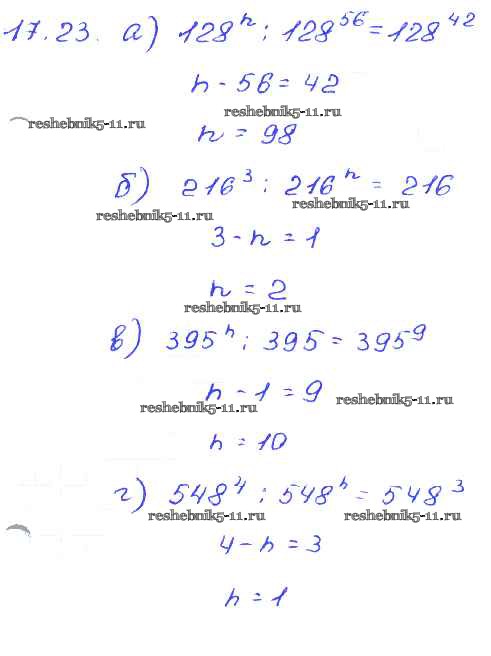 17.23. а) 128ⁿ : 128⁵⁶ = 128⁴²
n - 56 = 42
reshebnik5-11.ru
reshebnik5-11.ru
n = 98
б) 216³ : 216ⁿ = 216
reshebnik5-11.ru
reshebnik5-11.ru
3 - n = 1
n = 2
reshebnik5-11.ru
в) 395ⁿ : 395 = 395⁹
n - 1 = 9
reshebnik5-11.ru
reshebnik5-11.ru
n = 10
г) 548⁴ : 548ⁿ = 548³
reshebnik5-11.ru
reshebnik5-11.ru
4 - n = 3
n = 1